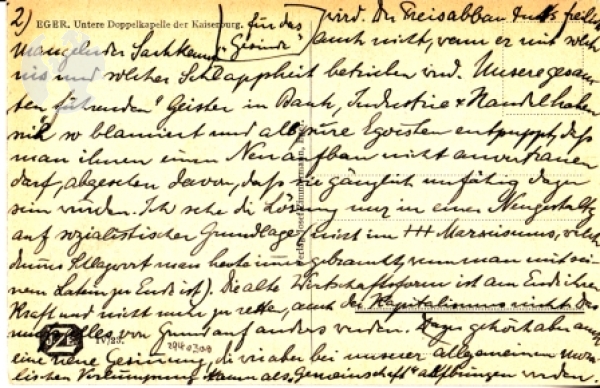 2) EGER. Untere Doppelkapelle der Kaiserburg. für das Gesinde" wird. Der Preisabbau tut's freilich
mangelnder Sachkenntnis auch nicht, wenn er mit solcher
und solcher Schlappheit betrieben wird. Unsere gesam-
ten führenden" Geister in Bank, Industrie & Handel haben
sich so blamiert und als pure Egoisten entpuppt, daß
man ihnen einen Neuaufbau nicht anvertrauen
darf, abgesehen davon, daß sie gänzlich unfähig dazu
sein würden. Ich sehe die Lösung nur in einer Neugestaltg
auf sozialistischer Grundlage nicht im +++ Marxismus, welch
dummes Schlagwort man heute immer gebraucht, wenn man mit sei-
nem Latein zu Ende ist). Die alte Wirtschaftsform ist am Ende ihrer
Kraft und nicht mehr zu retten, auch der Kapitalismus nicht. Es
muß alles von Grund auf anders werden. Dazu gehört aber auch
IV/23. 2940308
eine neue Gesinnung, die wir aber bei unserer allgemeinen mora-
lischen kaum als "Gemeinschaft" aufbringen werden.